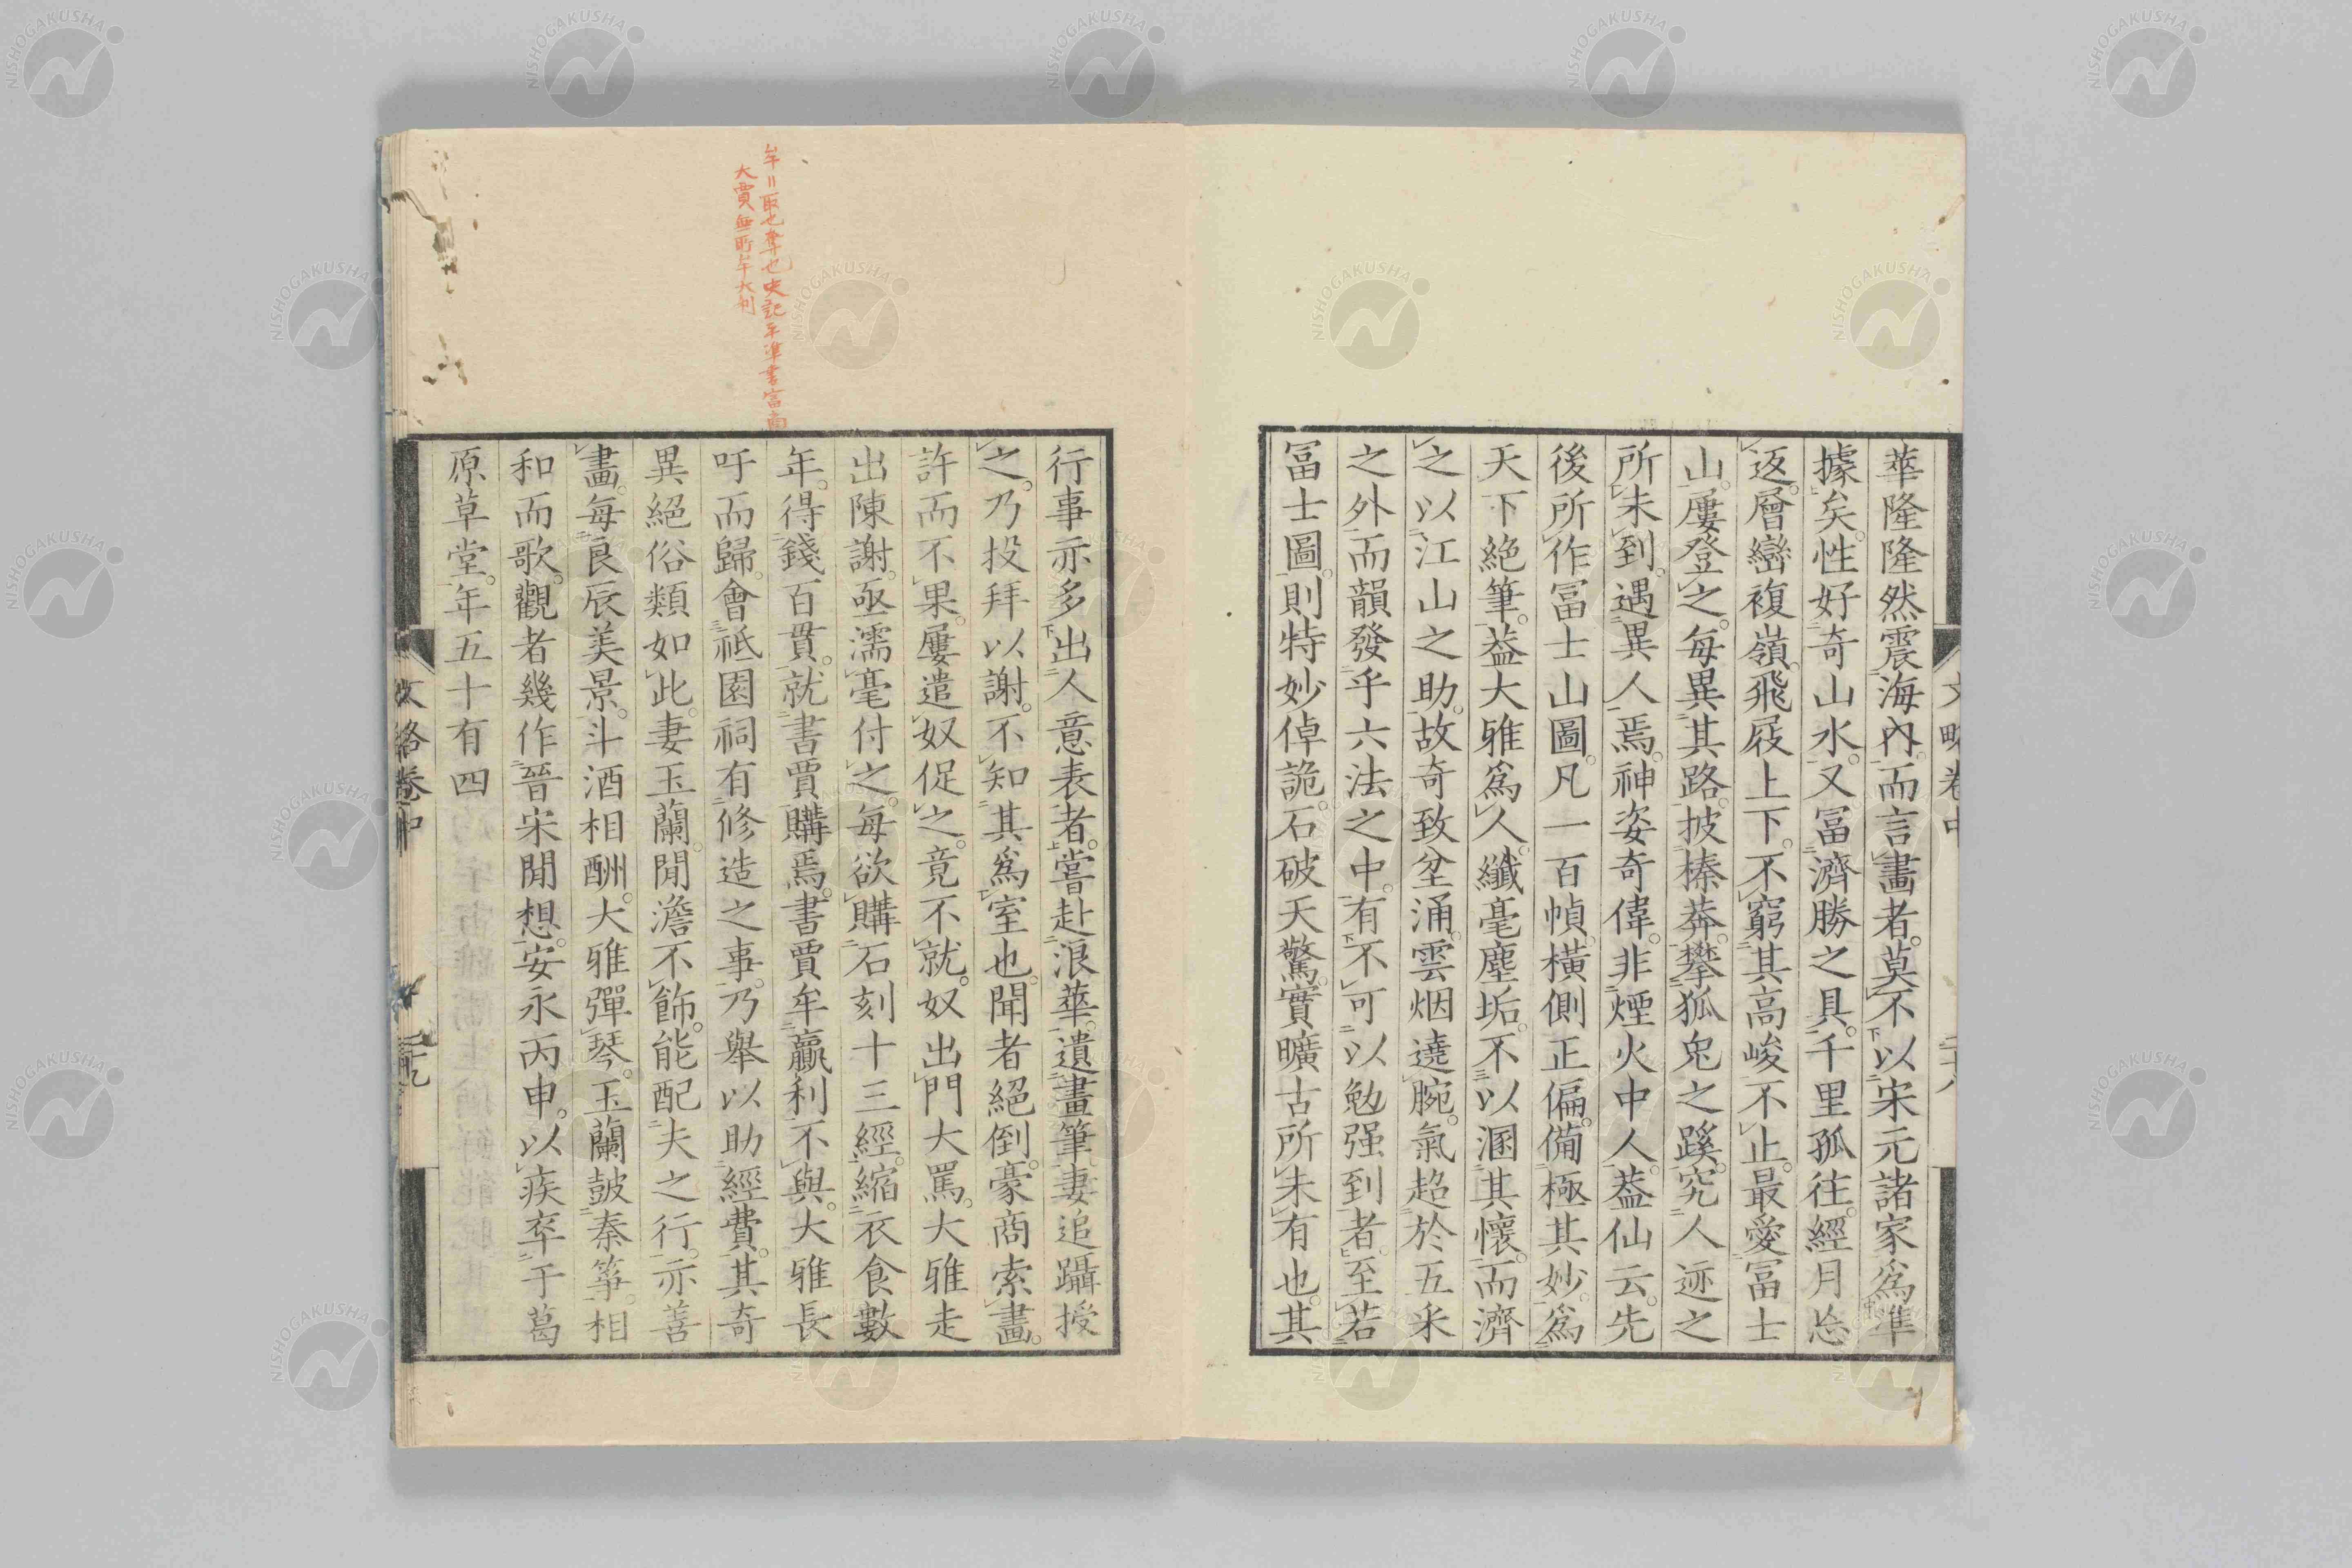 華隆隆然震海內。而言畫者。莫不以宋元諸家爲準
據矣。性好奇山水。又冨濟勝之具。千里孤往。經月忘
返。層巒複嶺。飛屐上下。不窮其高峻不止。最愛冨士
山。屢登之。每異其路。披榛莽。攀狐兔之蹊。究人迹之
所未到。遇異人焉。神姿奇偉。非煙火中人。葢仙云。先
後所作冨士山圖。凡一百幀。橫側正偏。備極其妙。爲
天下絕筆。葢大雅爲人。纖毫塵垢。不以溷其懷。而濟
之以江山之助。故奇致坌涌。雲烟遶腕。氣超於五采
之外。而韻發乎六法之中。有不可以勉强到者。至若
冨士圖。則特妙倬詭。石破天驚。實曠古所未有也。其
文略卷中
二十八
牟=取也奪也史記平準書富商
大賈無所牟大利
行事亦多出人意表者。嘗赴浪華。遺畫筆。妻追躡授
之。乃投拜以謝。不知其爲室也。聞者絕倒。豪商索畫。
許而不果。屢遣奴促之。竟不就。奴出門大罵。大雅走
出陳謝。亟濡毫付之。每欲購石刻十三經。縮衣食數
年。得錢百貫。就書賈購焉。書賈牟贏利。不與。大雅長
吁而歸。會祗園祠有修造之事。乃舉以助經費。其奇
異絕俗類如此。妻玉蘭。閒澹不飾。能配夫之行。亦善
畫。每良辰美景。斗酒相酬。大雅彈琴。玉蘭皷秦箏。相
和而歌。觀者幾作晉宋閒想。安永丙申。以疾卒于葛
原草堂。年五十有四